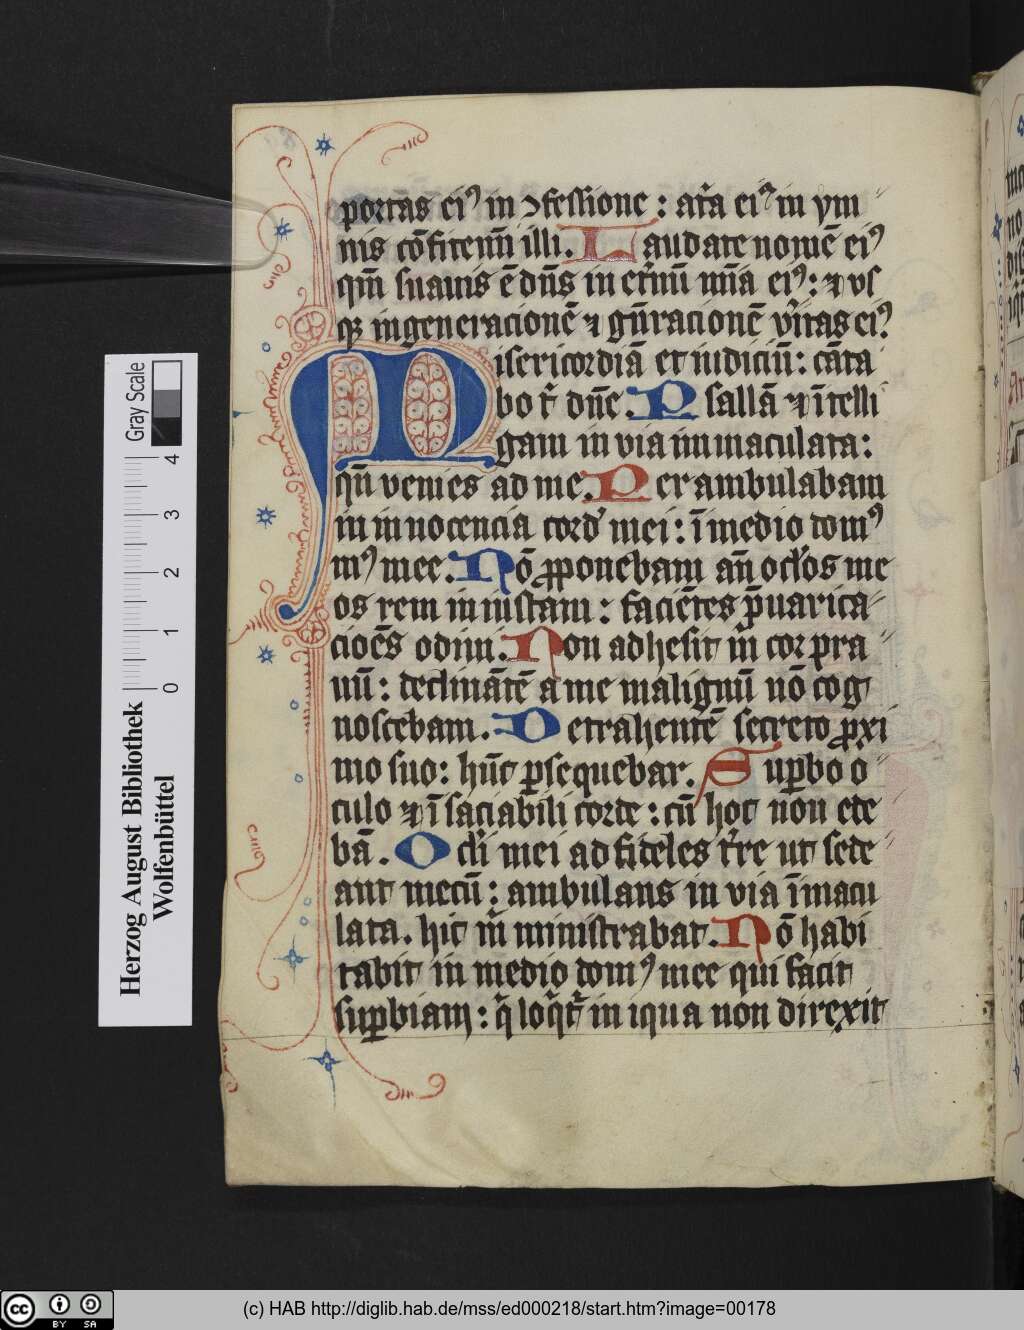 portas eiꝰ in ɔfessione : atͥa eiꝰ in ym
nis cōfitemī illi. Laudate nomē eiꝰ
qm̄ suauis ē dn̄s in et̄nū mīa eiꝰ: ⁊ vs
qꝫ in generacionē ⁊ gn̄racionē v̾itas eiꝰ
Misericordiā et iudiciū: cāta
bo t̾ dn̄e. Psallā ⁊ ītelli
gam in via immaculata:
qn̄ venies ad me. Perambulabam
in innocencia cord̾ mei: ī medio domꝰ
mꝰ mee. Nō ꝓponebam an̄ oc̄los me
os rem iniustam: faciētes p̄uarica
cioēs odiui. Non adhesit m̄ cor pra
uū: declinātē a me malignū nō cog
noscebam. Detrahentē secreto ꝓxi
mo suo: hūc ꝑsequebar. Suꝑbo o
culo ⁊ īsaciabili corde: cū hoc non ede
bā. Oc̄li mei ad fideles t̾re ut sede
ant mecū: ambulans in via īmacu
lata. hic m̄ ministrabat. Nō habi
tabit in medio domꝰ mee qui facit
suꝑbiam: q̄ loqͥt̾ iniqua non direxit
Herzog August Bibliothek
Wolfenbüttel
Gray Scale
0 1 2 3 4
cc BY SA
(c) HAB http://diglib.hab.de/mss/ed000218/start.htm?image=00178